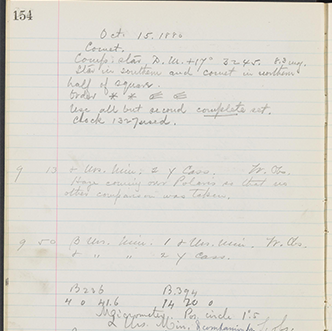 154
Oct. 15. 1880
Comet.
Comp. star D.M. +17° 3245. 8.3 mag.
Star in southern and comet in northern
half of square.
Order * *
Use all but second complete set.
Clock 1327 used.
9 13 Urs. Min. = γ Cass.
Haze coming over Polaris so that no
other comparison was taken.
9 50 β Urs. Min. 1 Urs. Min.
" " = γ Cass.
B226 B394
4 0 41.6 14 20 0
Micrometry. Pos. circle 1°.5
Urs. Min. & companion